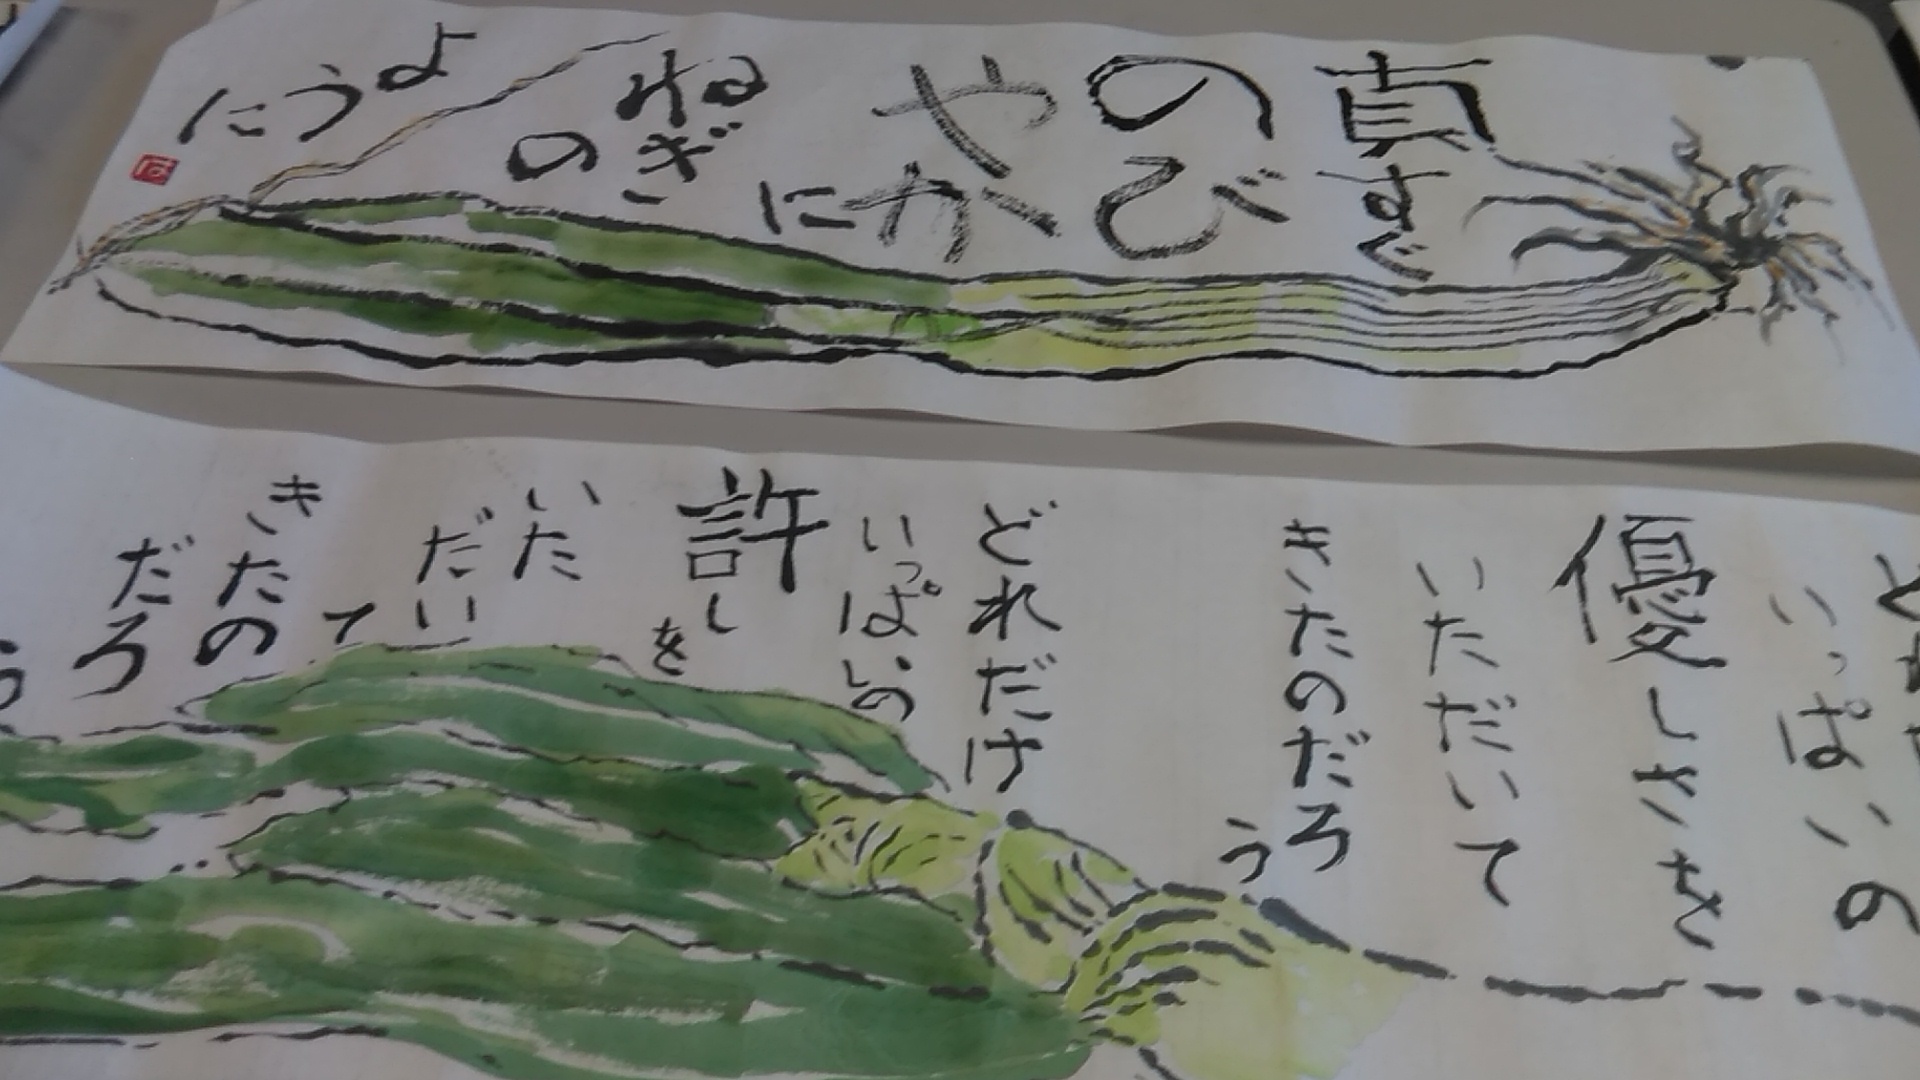 真すぐ
のび
やか
に
ねぎ
の
よ
うに
は
いっぱいの
優しさを
いただいて
きたのだろ
う
どれだけ
いっぱいの
許しを
いた
だい
て
きたの
だろ
う